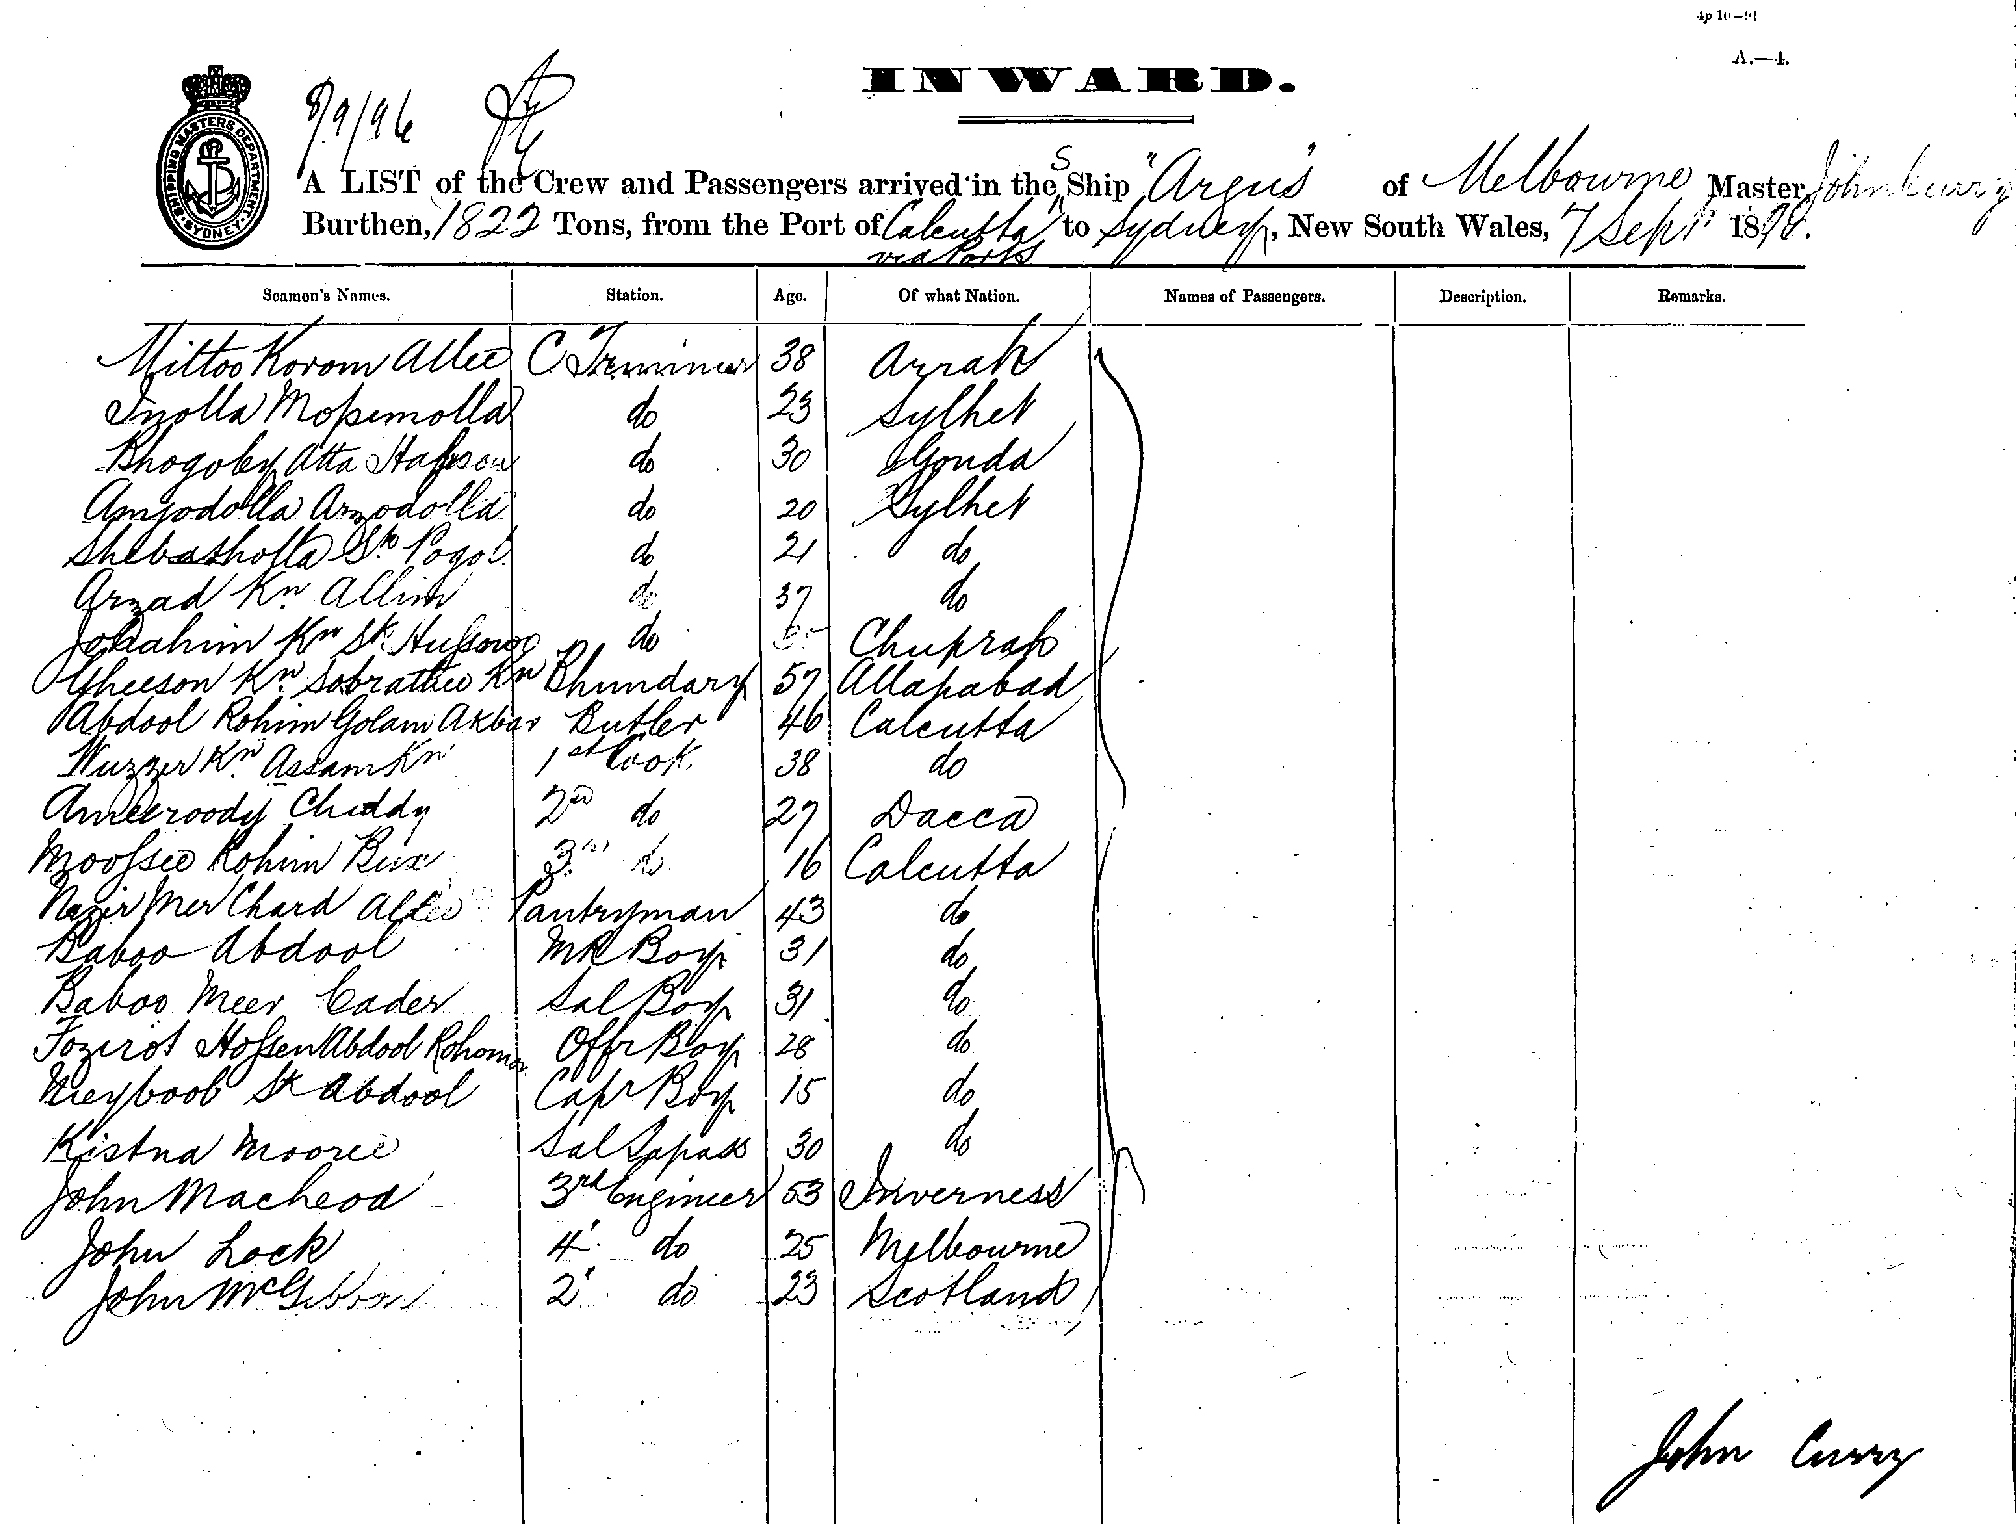 4p 10-91
A.—4.
8/9/96
INWARD.
SHIPPING MASTERS DEPARTMENT. SYDNEY
A LIST of the Crew and Passengers arrived in the S Ship "Argus" of Melbourne Master John Curry
Burthen, 1822 Tons, from the Port of Calcutta to Sydney, New South Wales, 7 Sepr 1896.
via Ports
Seamen's Names. Station. Age. Of what Nation. Names of Passengers. Description. Remarks.
Mittoo Korom Allee C Trimmer 38 Arrah
Inolla Mosimolla do 23 Sylhet
Bhogoby Atta Hasson do 30 Gonda
Amjodolla Arzodolla do 20 Sylhet
Shebashotta Sk Pogo do 21 do
Arzad Kn Allim do 37 do
Jobrahim Kn Sk Hussom do Chuprah
Gheeson Kn Sobrattee Kn Bhundary 57 Allahabad
Abdool Rohim Golam Akbar Butler 46 Calcutta
Wuzzer Kn Assam Kn 1st Cook 38 do
Ameeroody Chiddy 2nd do 27 Dacca
Moossee Rohim Bux 3rd do 16 Calcutta
Nazir Mer Chard Allee Pantryman 43 do
Baboo Abdool MR Boy 31 do
Baboo Meer Cader Sal Boy 31 do
Fozirot Hossen Abdool Rohoman Offr Boy 28 do
Meyboob Sk Abdool Capt Boy 15 do
Kistna Mooree Sal Topass 30 do
John Macleod 3rd Engineer 53 Inverness
John Lock 4 do 25 Melbourne
John McGibbon 2 do 23 Scotland
John Curry